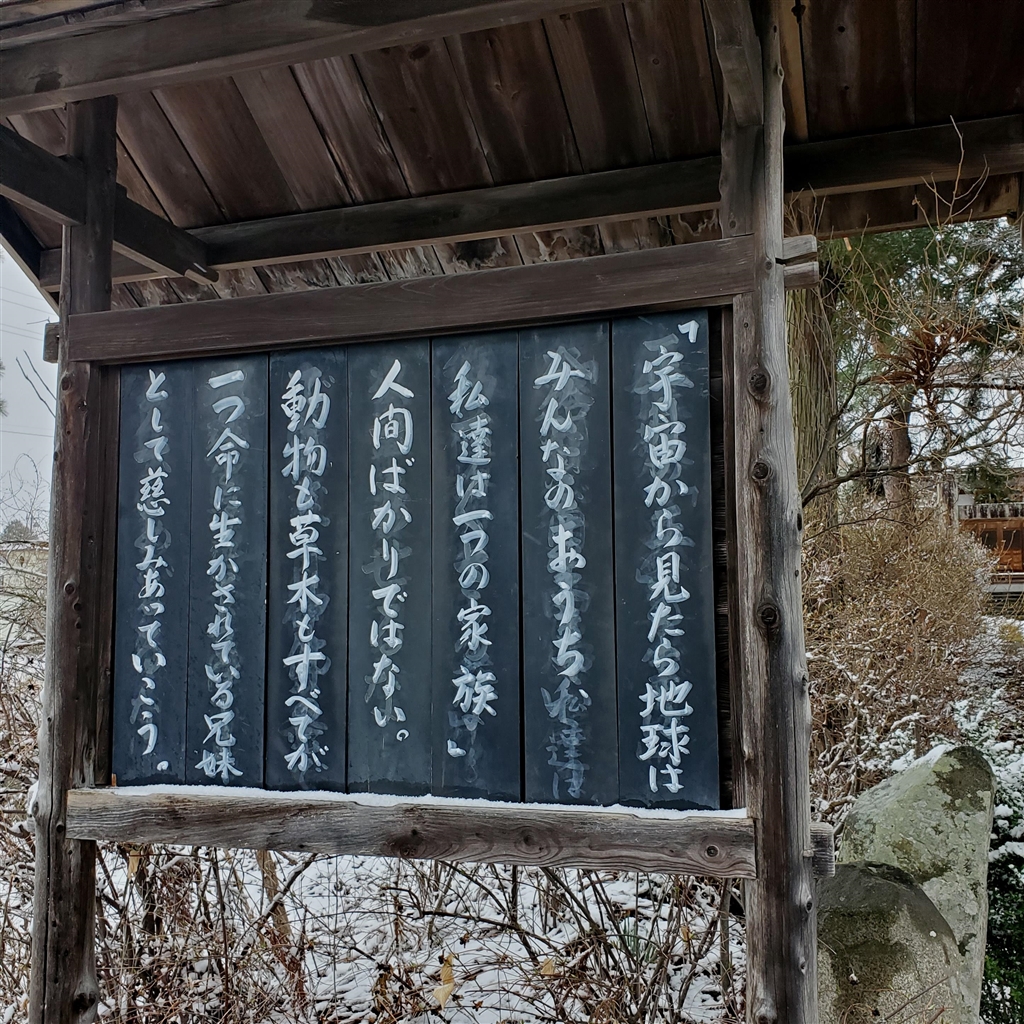 「宇宙から見たら地球は
みんなのおうち
私達は一つの家族」
人間ばかりではない。
動物も草木もすべてが
一つ命に生かされている兄妹
として慈しみあっていこう。